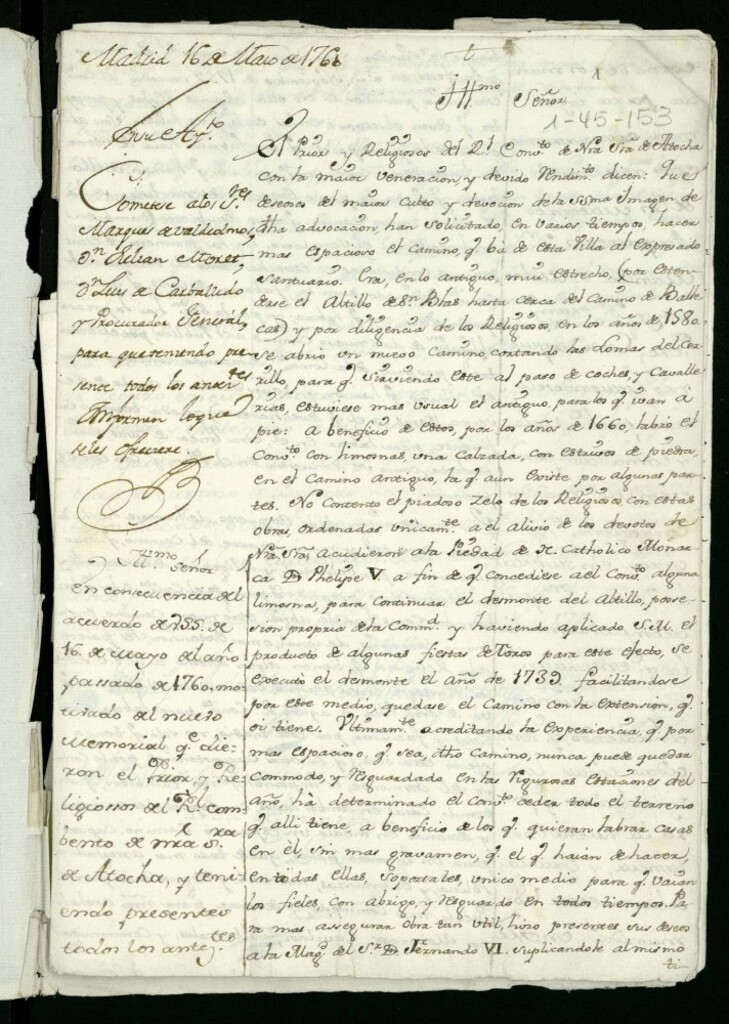 Madrid 16 de Maio de 1760
t
1
Jll.mo Señor
1-45-153
En su Ay.to
Cometese a los S.res
Marques de valdeolmos,
D.n Julian Moret,
D.n Luis de Carballido
y Procurador General,
para que teniendo pre-
sente todos los antez.tes
Informen lo que
se les ofreciere.
Jll.mo Señor
en consecuencia del
acuerdo de VSS. de
16. de mayo del año
passado de 1760, mo-
tivado del nuevo
memorial q.e die-
ron el Prior, y Re-
ligiossos del R.l com-
bento de nra S.ra
de Atocha, y teni-
endo presentes
todos los antez.tes
El Prior y Religiosos del R.l Conv.to de Nra Sra de Atocha
con la maior veneracion, y devido Rendim.to dicen: Que
deseosos del maior Culto y devocion de la Ssma Imagen de
dha advocacion, han solicitado, en varios tiempos, hacer
mas espacioso el camino, q. bà de esta Villa al expresado
santuario. Era, en lo antiguo, mui estrecho, (por esten-
derse el Altillo de S.n Blas hasta cerca del Camino de Balle-
cas) y por diligencia de los Religiosos, en los años de 1580.
se abrio un nuevo Camino, cortando las lomas del Cer-
rillo, para q. sirviendo este al paso de coches, y Cavalle-
rias, estuviese mas usual el antiguo, para los q. ivan à
pie: A beneficio de estos, por los años de 1660, labró el
Conv.to con limosnas, una Calzada, con estrivos de piedra,
en el Camino Antiguo, la q. aun existe por algunas par-
tes. No Contento el piadoso Zelo de los Religiosos con estas
obras, ordenadas unicam.te a el alivio de los devotos de
Nra Sra, acudieron a la Piedad de N. Catholico Monar-
ca D. Phelipe V. a fin de q. concediese a el Conv.to alguna
limosna, para continuar el desmonte del Altillo, posse-
sion propria de la Comm.d y haviendo aplicado S.M. el
producto de algunas fiestas de Toros para este efecto, se
executó el desmonte el año de 1739. facilitandose
por este medio, quedase el Camino con la extension, q.
oi tiene. Ultimam.te acreditando la Experiencia, q. por
mas espacioso, q. sea, dho Camino, nunca puede quedar
Commodo, y resguardado en las rigurosas estaciones del
año, hà determinado el Conv.to ceder todo el terreno
q. alli tiene, a beneficio de los q. quieran labrar casas
en èl, sin mas gravamen, q. el q. haian de hacer,
en todas ellas, soportales, unico medio para q. vaian
los fieles, con abrigo, y resguardo en todos tiempos. Pa-
ra mas assegurar obra tan util, hizo presentes sus deseos
a la Mag.d del S.r D. Fernando VI. suplicandole al mismo
ti-